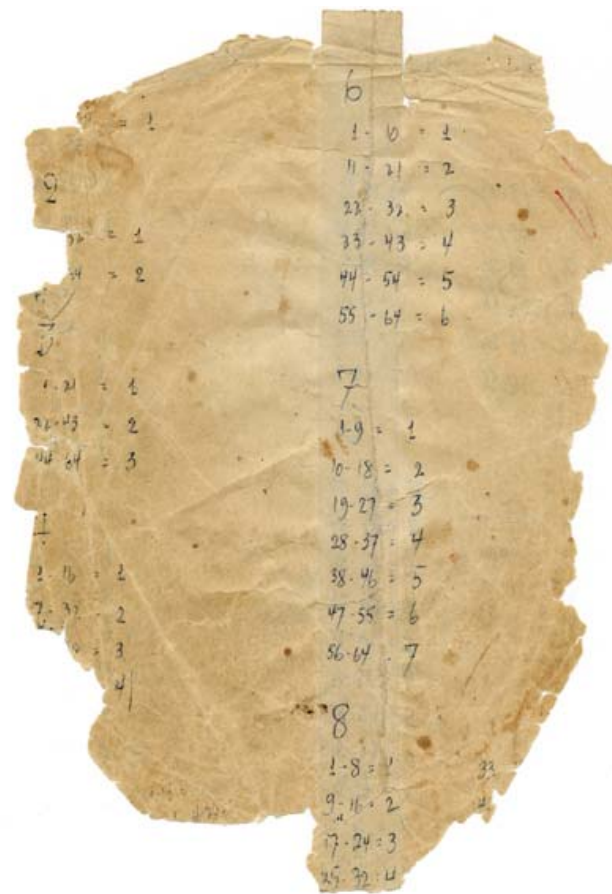 = 1
2
32 = 1
64 = 2
1-21 = 1
22-43 = 2
44-64 = 3
1-16 = 1
32 - 2
= 3
4
6
1-10 = 1
11-21 = 2
22-32 = 3
33-43 = 4
44-54 = 5
55-64 = 6
7
1-9 = 1
10-18 = 2
19-27 = 3
28-37 = 4
38-46 = 5
47-55 = 6
56-64 . 7
8
1-8 = 1
9-16 = 2
17-24 = 3
25-32 = 4
33